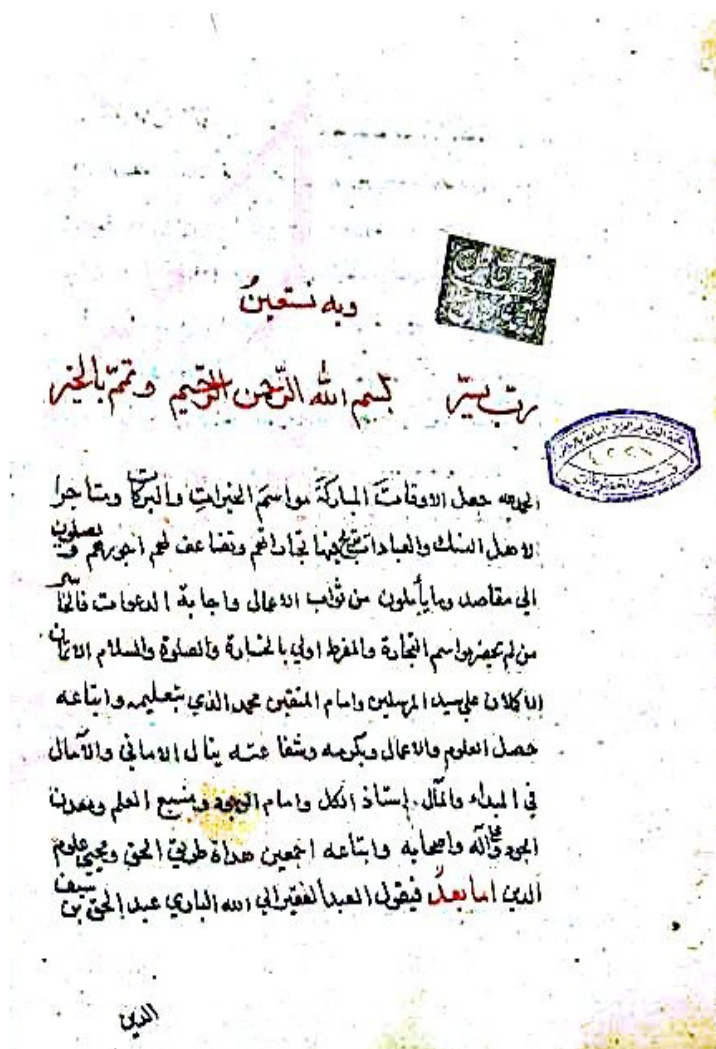 وبه نستعينُ
ربّ يسّر بسم الله الرّحمن الرّحيم وتمّم بالخير
الحمد لله جعل الاوقاتَ المباركةَ مواسمَ الخيراتِ والبركات ومتاجرا
لاهل النسك والعبادات تربح فيها تجاراتهم وتضاعف لهم اجورهم ويصلون
الي مقاصد وما يأملون من ثواب الاعمال واجابة الدعوات فالخاسر
من لم يحضر مواسم التجارة والمفرط اولي بالخسارة والصلوة والسلام الاتمان
الاكملان علي سيد المرسلين وامام المتقين محمد الذي بتعليمه واتباعه
حصل العلوم والاعمال وبكرمه وشفاعته ينال الاماني والآمال
في المبداء والمآل إستاذ الكل وامام الوجود ومنبع العلم ومعدن
الجود وآله واصحابه واتباعه اجمعين هداة طريق الحق ومحيي علوم
الدين اما بعدُ فيقول العبد الفقير الي الله الباري عبد الحق بن سيف
الدين